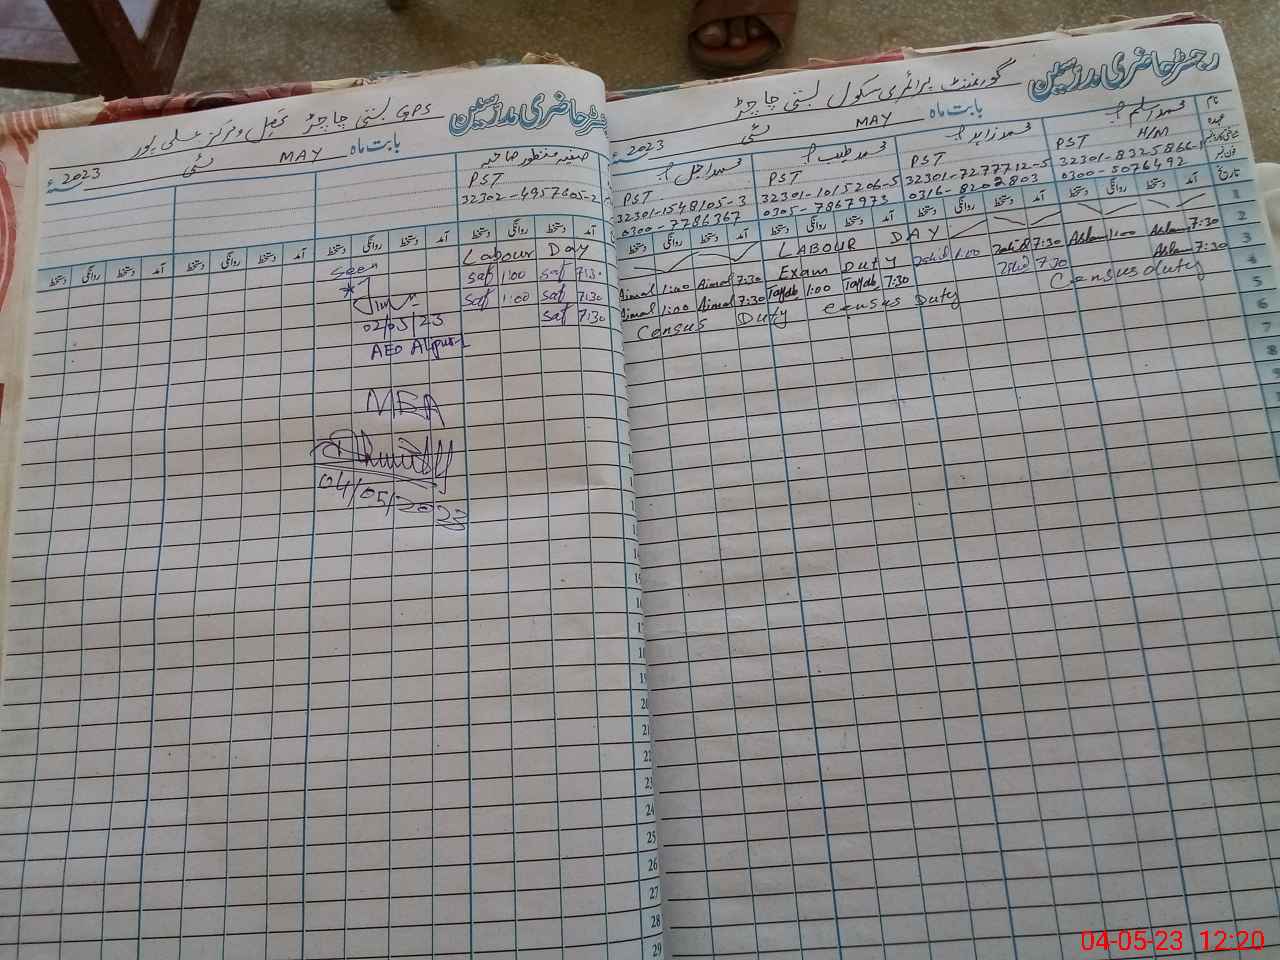 رجسٹر حاضری مدرسین
گورنمنٹ پرائمری سکول بستی چاچڑ
بابت ماہ MAY مئی 2023ء
نام
عہدہ
تاریخ
محمد اسلم
PST H/M
32301-8325866-
0300-5076492
محمد زاہد
PST
32301-7277712-5
0316-8202803
محمد طیب
PST
32301-1015206-5
0305-7867973
محمد اجمل
PST
32301-1548105-3
0300-7786367
آمد دستخط روانگی دستخط آمد دستخط روانگی دستخط آمد دستخط روانگی دستخط آمد دستخط روانگی دستخط
1 LABOUR DAY
2 7:30 Aslam 1:00 Aslam 7:30 Zahid 1:00 Zahid Exam Duty 7:30 Aimal 1:00 Aimal
3 7:30 Aslam 7:30 Zahid 7:30 Tayyab 1:00 Tayyab 7:30 Aimal 1:00 Aimal
4 Census duty Census Duty Census Duty
5
6
7
8
20
21
22
23
24
25
26
27
28
29
رجسٹر حاضری مدرسین
GPS بستی چاچڑ تحصیل و مرکز علی پور
بابت ماہ MAY مئی 2023ء
صفیہ منظور صاحبہ
PST
32302-4957605-2
آمد دستخط روانگی دستخط آمد دستخط روانگی دستخط آمد دستخط روانگی دستخط آمد دستخط روانگی دستخط
Labour Day
7:30 Saf 1:00 Saf
7:30 Saf 1:00 Saf
7:30 Saf
Seen
02/05/23
AEO Alipur-1
MEA
04/05/2023
04-05-23 12:20